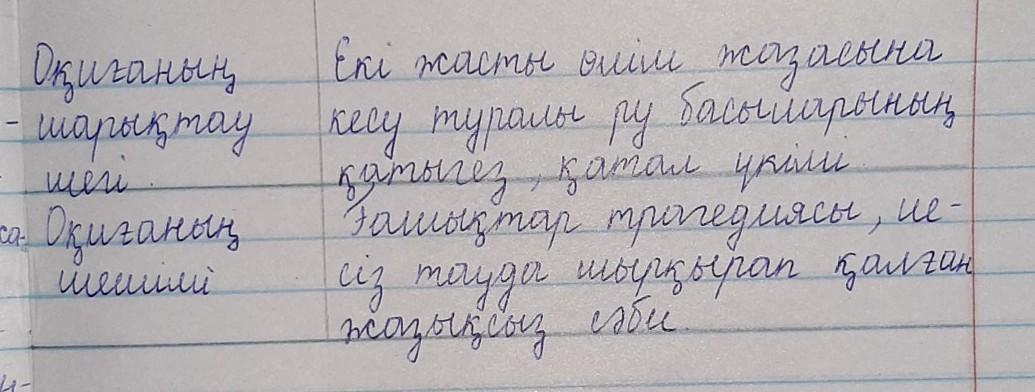 Оқиғаның
- шарықтау
шегі.
Екі жасты өлім жазасына
кесу туралы ру басыларының
қатыгез, қатал үкімі.
са-
Оқиғаның
шешімі
Ғашықтар трагедиясы, ие-
сіз тауда шырқырап қалған
жазықсыз сәби.